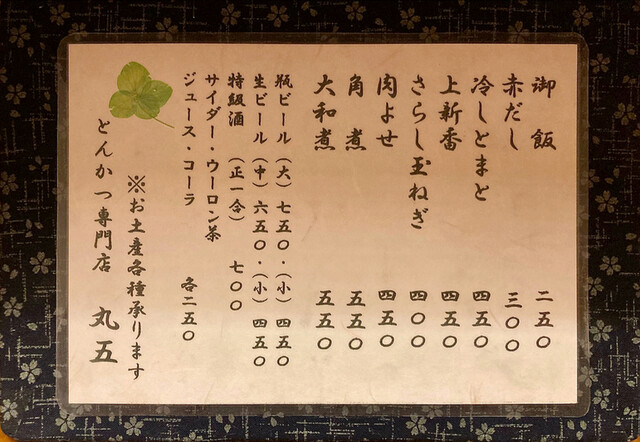 御飯 二五〇
赤だし 三〇〇
冷しとまと 四五〇
上新香 四五〇
さらし玉ねぎ 四〇〇
肉よせ 四五〇
角煮 五五〇
大和煮 五五〇
瓶ビール(大)七五〇・(小)四五〇
生ビール(中)六五〇・(小)四五〇
特級酒(正一合)七〇〇
サイダー・ウーロン茶
ジュース・コーラ 各二五〇
※お土産各種承ります
とんかつ専門店 丸五